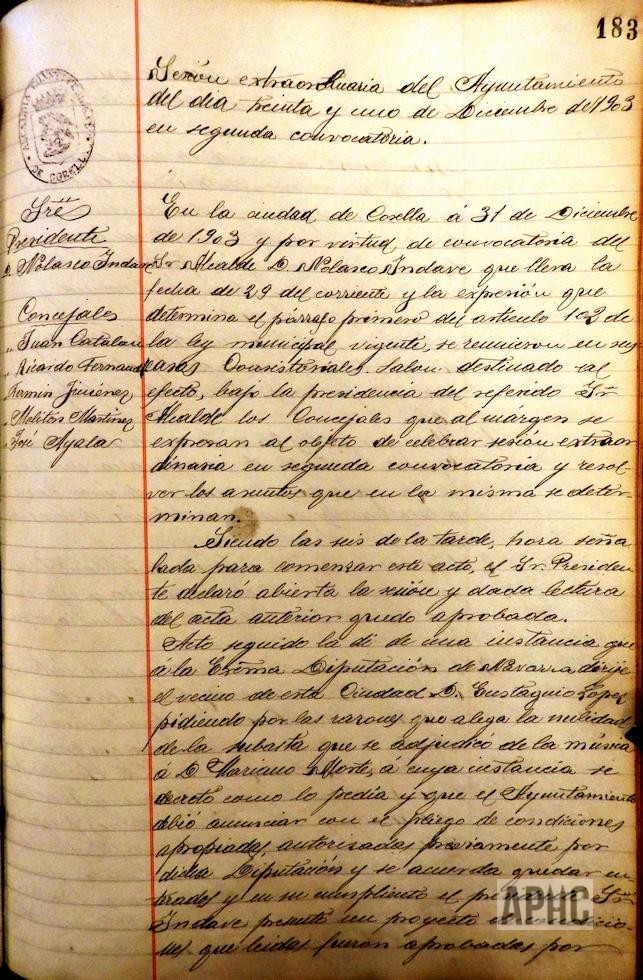 183
Sesión extraordinaria del Ayuntamiento
del dia treinta y uno de Diciembre de 1903
en segunda convocatoria.
DE CORELLA
Sres
Presidente
D. Nolasco Indave
Concejales
" Juan Catalan
" Ricardo Fernandez
" Fermin Jiménez
" Meliton Martinez
" José Ayala
En la ciudad de Corella á 31 de Diciembre
de 1903 y por virtud de convocatoria del
Sr Alcalde D. Nolasco Indave que lleva la
fecha de 29 del corriente y la expresión que
determina el párrafo primero del articulo 102 de
la ley municipal vigente, se reunieron en sus
Casas Consistoriales. Salon destinado al
efecto, bajo la presidencia del referido Sr
Alcalde los Concejales que al márgen se
expresan al objeto de celebrar sesion extraor
dinaria en segunda convocatoria y resol-
ver los asuntos que en la misma se deter-
minan.
Siendo las seis de la tarde, hora seña
lada para comenzar este acto, el Sr. Presiden
te declaró abierta la sesión y dada lectura
del acta anterior quedo aprobada.
Acto seguido la di de una instancia que
á la Excma Diputación de Navarra dirije
el vecino de esta Ciudad D. Eustaquio Lopez
pidiendo por las razones que alega la nulidad
de la subasta que se adjudicó de la música
á D. Mariano Morte, á cuya instancia se
decretó como lo pedia y que el Ayuntamiento
debió anunciar con el pliego de condiciones
apropiadas, autorizadas préviamente por
dicha Diputación y se acuerda quedar en
terados y en su cumplimto el Sr
Indave presentó un proyecto de condicio
nes que leidas fueron aprobadas por
APHC